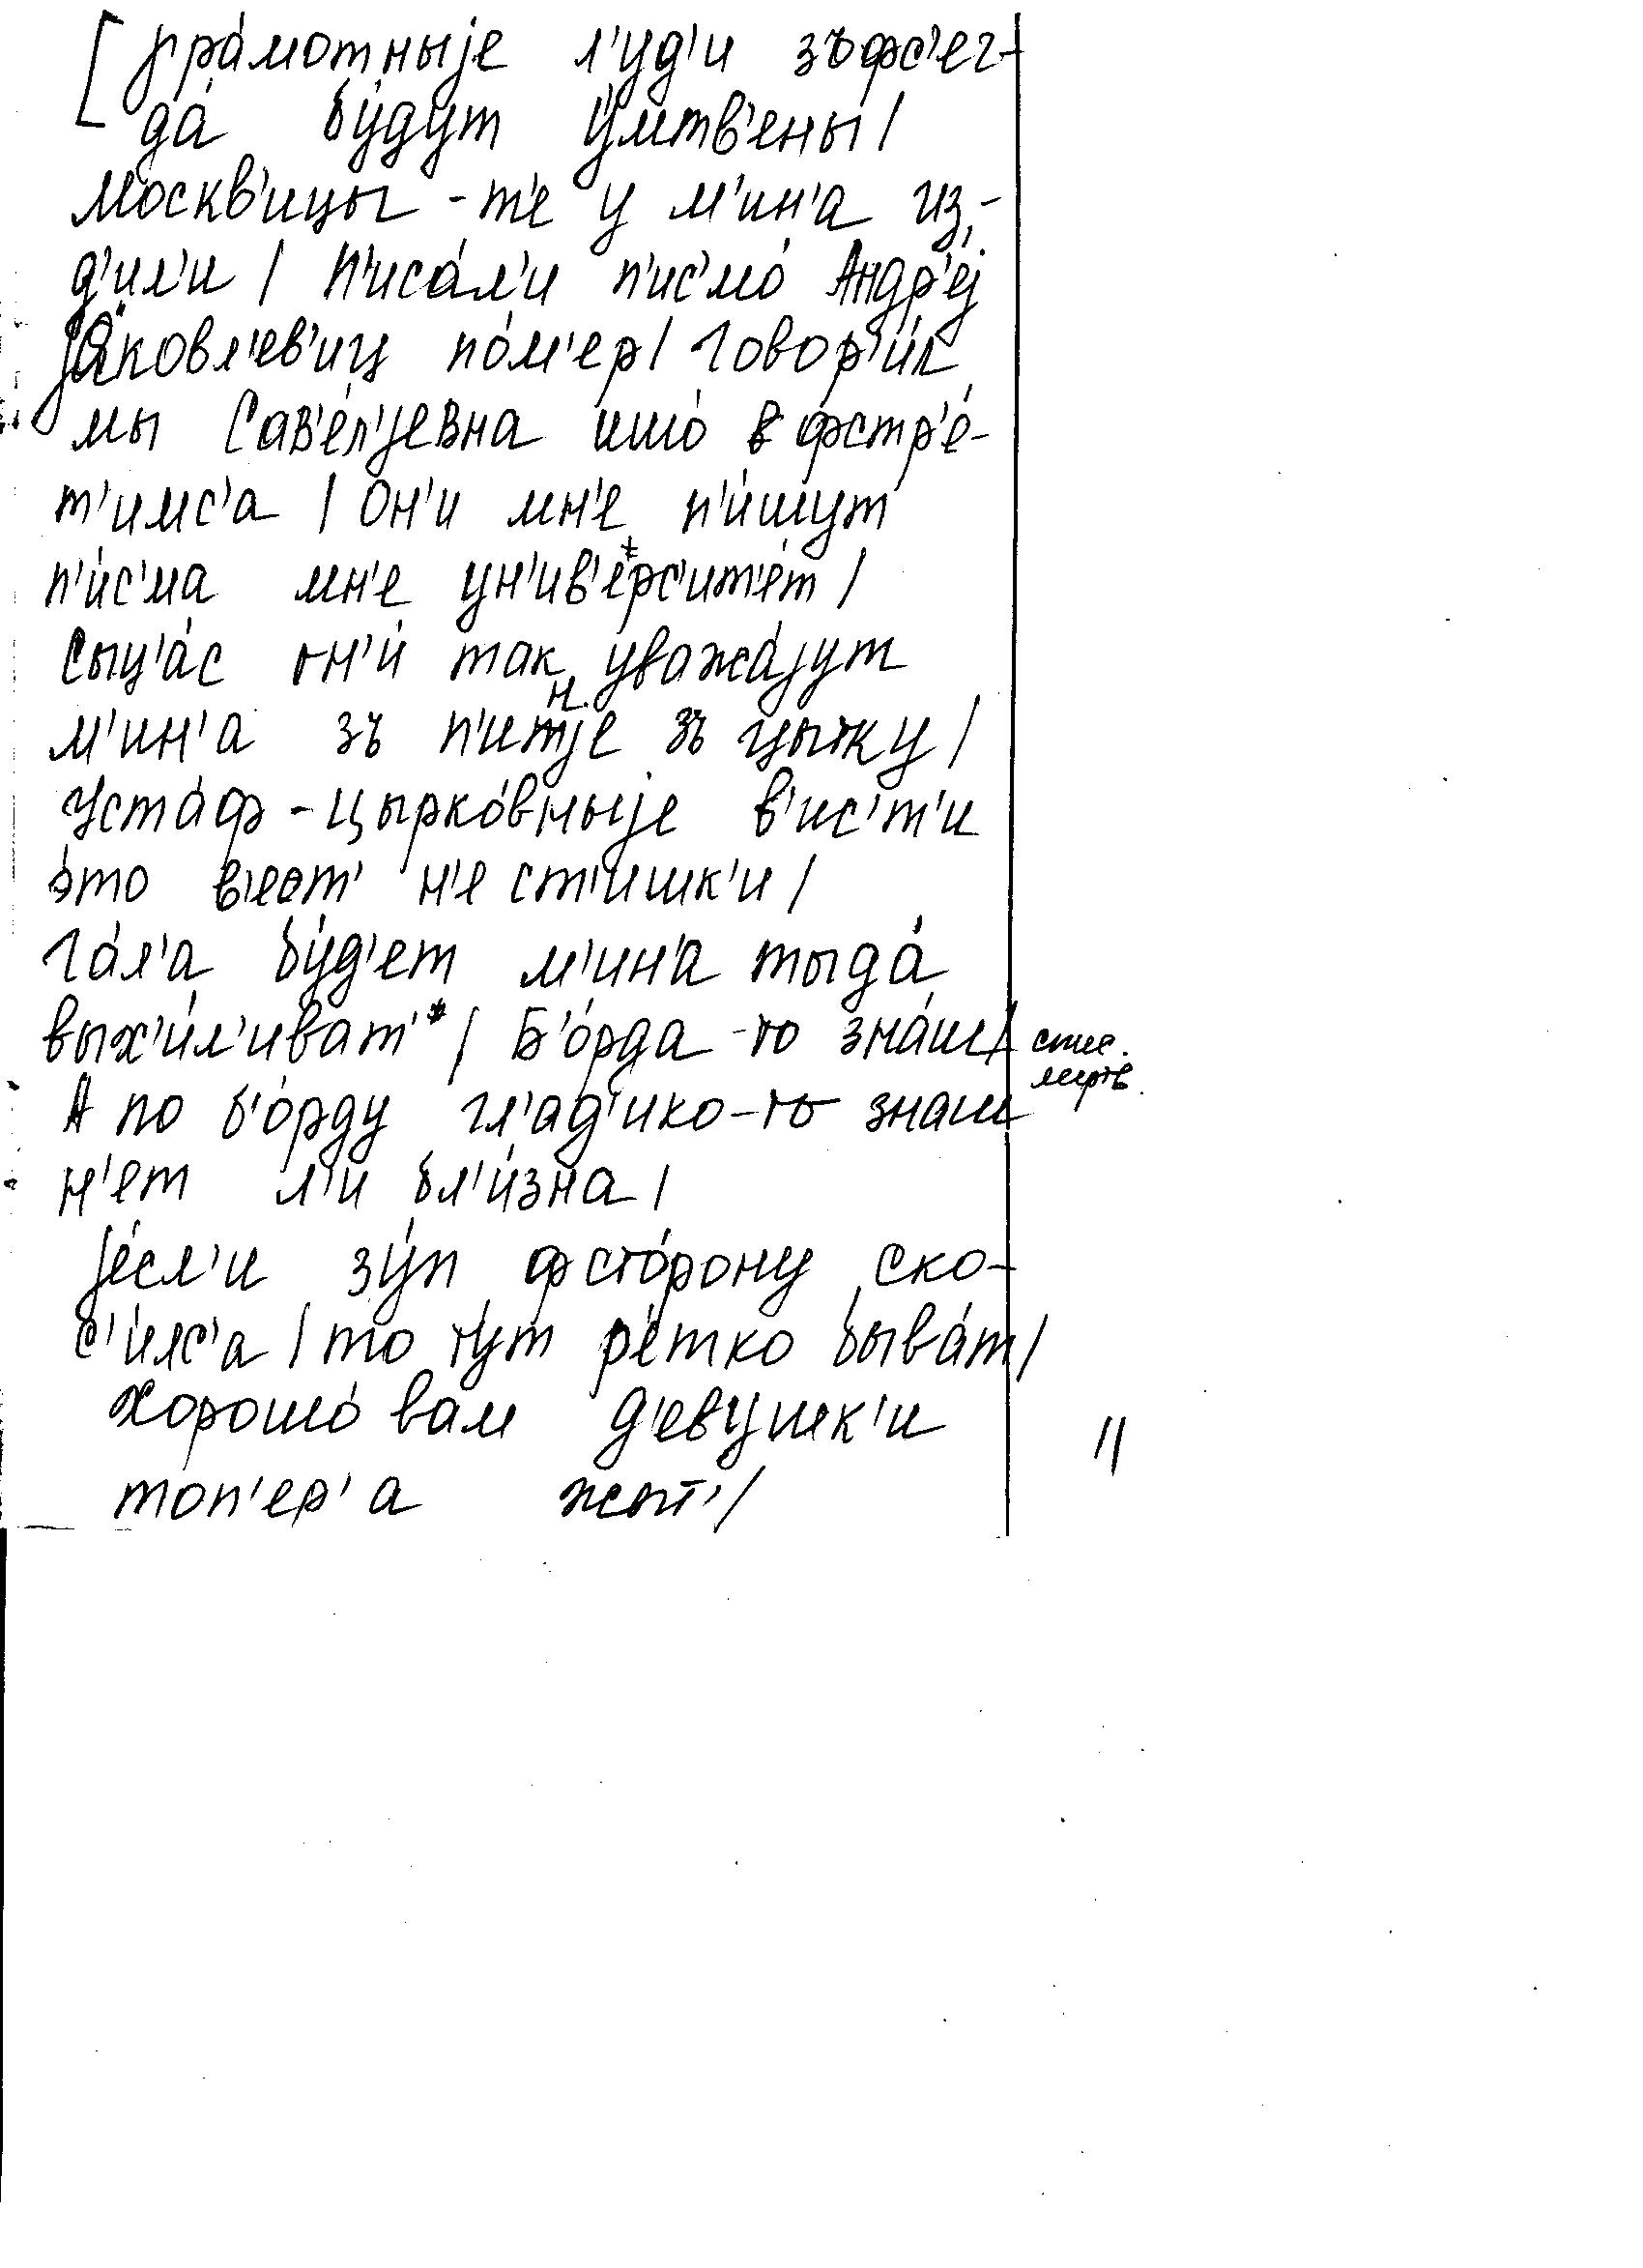 [γра́мотныjе л'уд'и зъфс'ег-
да́ бу́дут у́мтв'ены /
москв'ицы - т'е у м'ин'а из-
д'ил'и / п'иса́л'и п'ис'мо́ Андр'еj
jа́ковл'ев'иц по́м'ер / говор'и́л
мы Сав'е́л'jевна ишо́ фстр'е́-
т'имс'а / Он'и мн'е п'и́шут
п'и́с'ма мн'е ун'ив'е́рс'ит'е́т /
Сыц'а́с он'и́ так уважа́jут
м'ин'а зъ п'ит'jе зъ цытку /
Уста́ф - цырко́вныjе в'ис'т'и
э́то в'ест' н'е ст'ишк'и /
Га́л'а бу́д'ет м'ин'а тыда́
вых'и́л'иват'* / Б'о́рда - то зна́ш /
А по б'о́рду гл'ад'ико-то знаш
н'ет л'и бл'и́зна /
jе́сл'и зу́п фсто́рону ско-
с'и́лс'а / то тут р'е́тко быва́т /
Хорошо́ вам д'евушк'и
топ'ер'а жыт' /
11